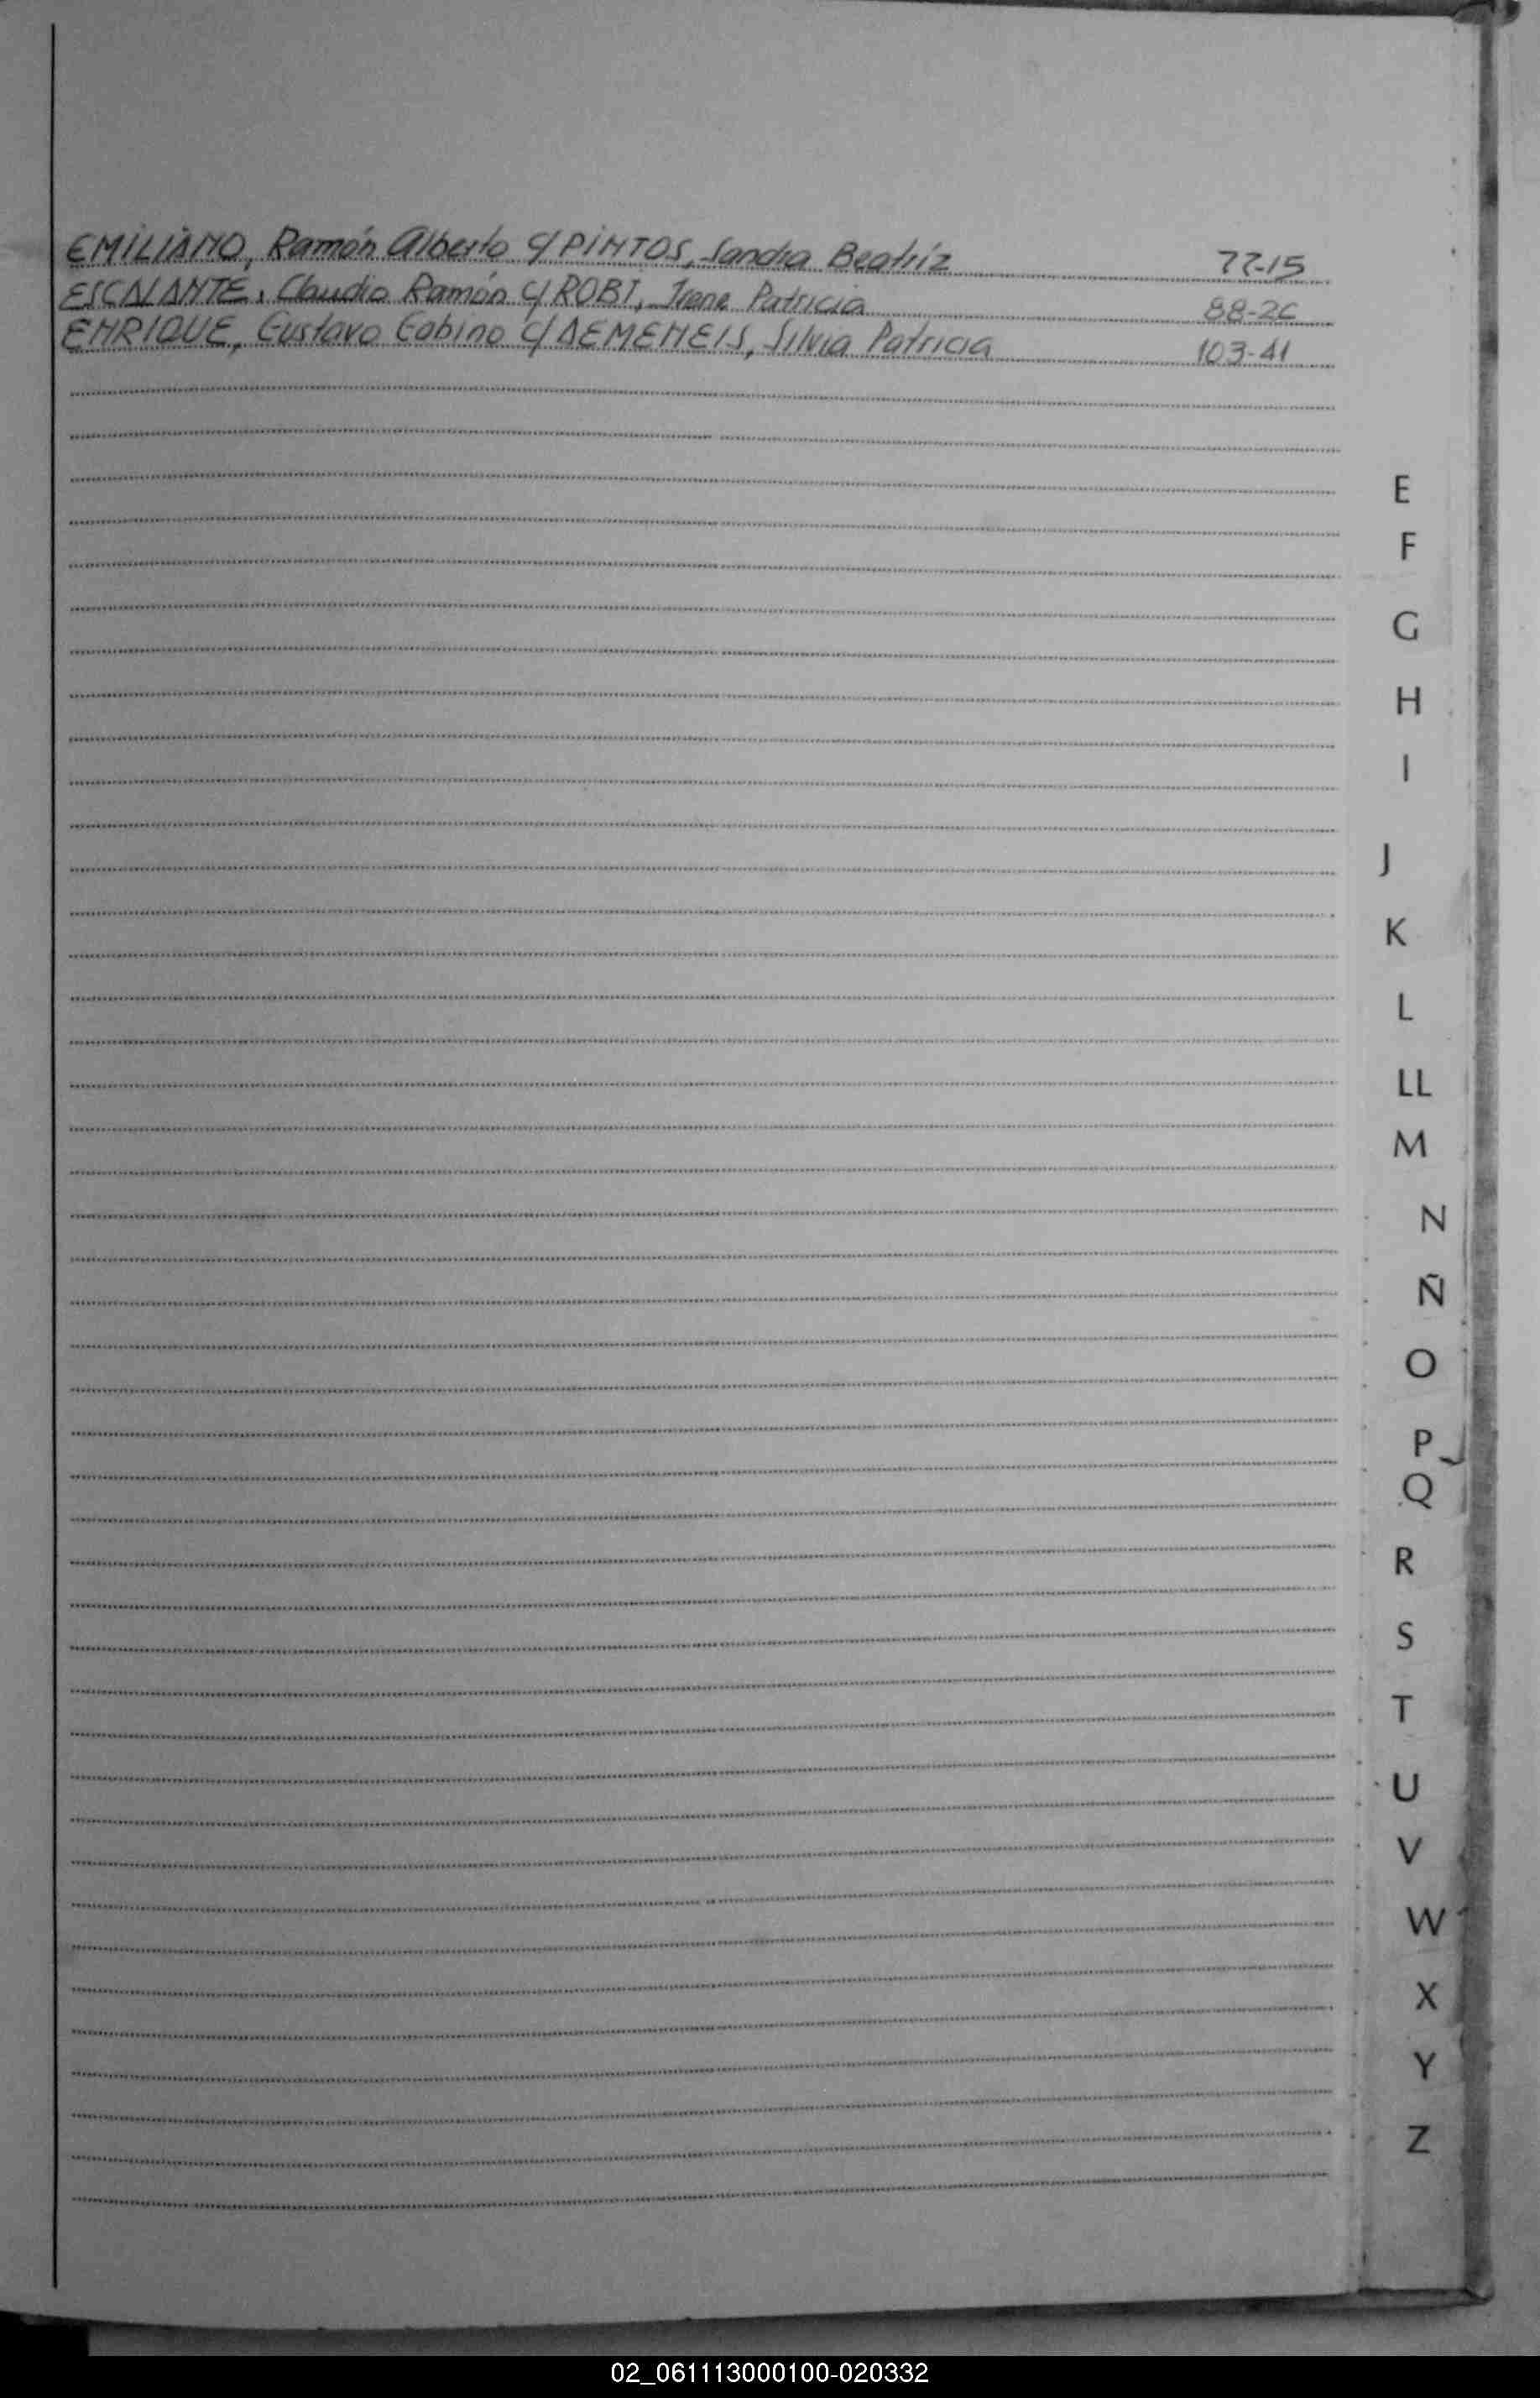 EMILIANO, Ramón Alberto c/ PINTOS, Sandra Beatríz 77-15
ESCALANTE, Claudio Ramón c/ ROBI, Irene Patricia 88-26
ENRIQUE, Gustavo Gabino c/ DEMENEIS, Silvia Patricia 103-41
E
F
G
H
I
J
K
L
LL
M
N
Ñ
O
P
Q
R
S
T
U
V
W
X
Y
Z
02_061113000100-020332